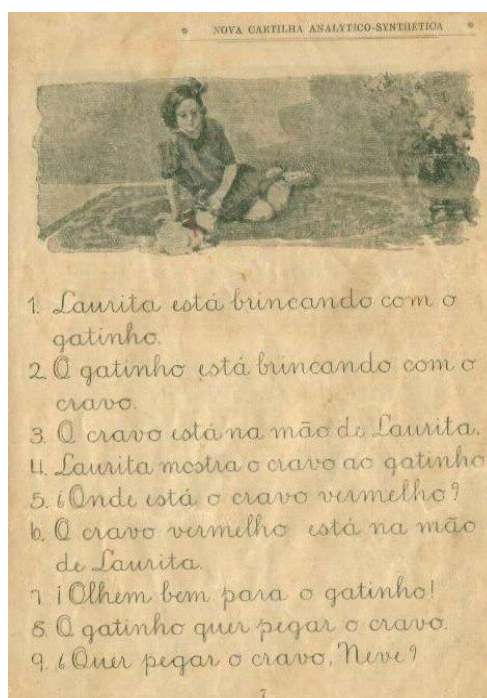 NOVA CARTILHA ANALYTICO-SYNTHETICA
1. Laurita está brincando com o
gatinho.
2. O gatinho está brincando com o
cravo.
3. O cravo está na mão de Laurita.
4. Laurita mostra o cravo ao gatinho
5. ¿Onde está o cravo vermelho?
6. O cravo vermelho está na mão
de Laurita.
7. ¡Olhem bem para o gatinho!
8. O gatinho quer pegar o cravo.
9. ¿Quer pegar o cravo, Neve?
7